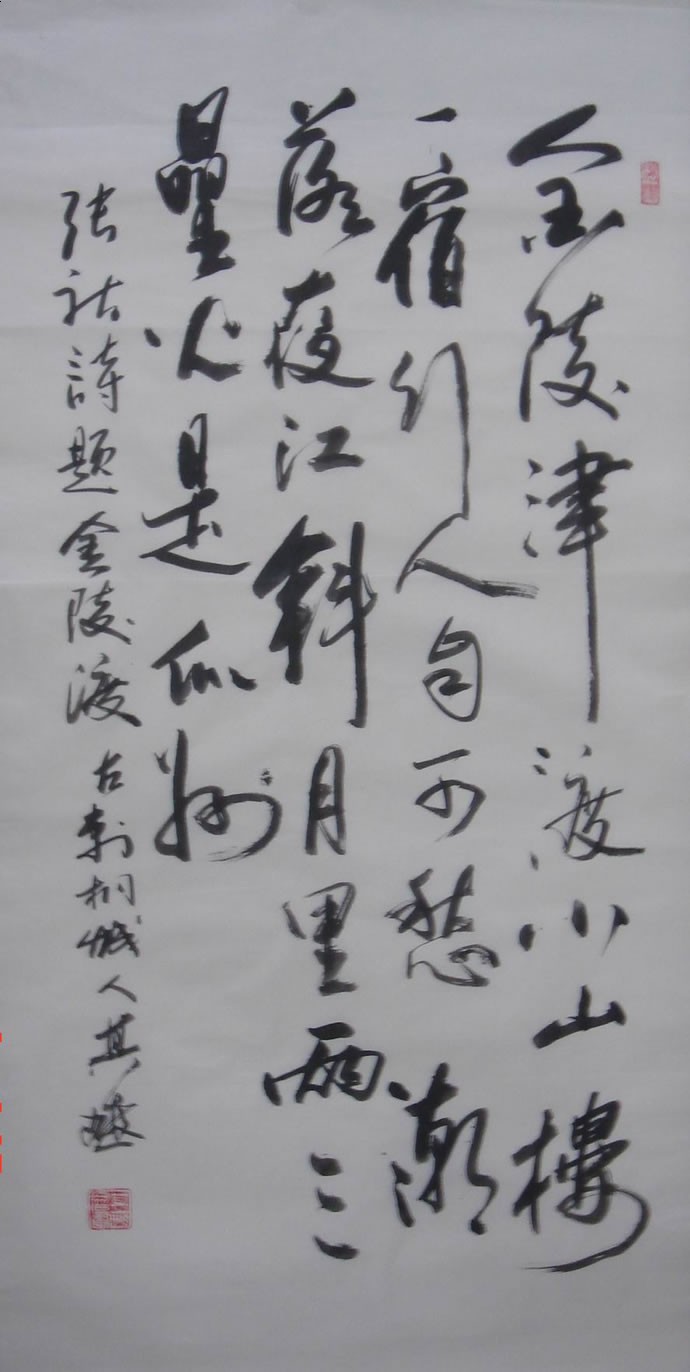 金陵津渡小山樓
一宿行人自可愁潮
落夜江斜月里兩三
曐火是瓜洲
张祜詩题金陵渡 古刺桐城人其